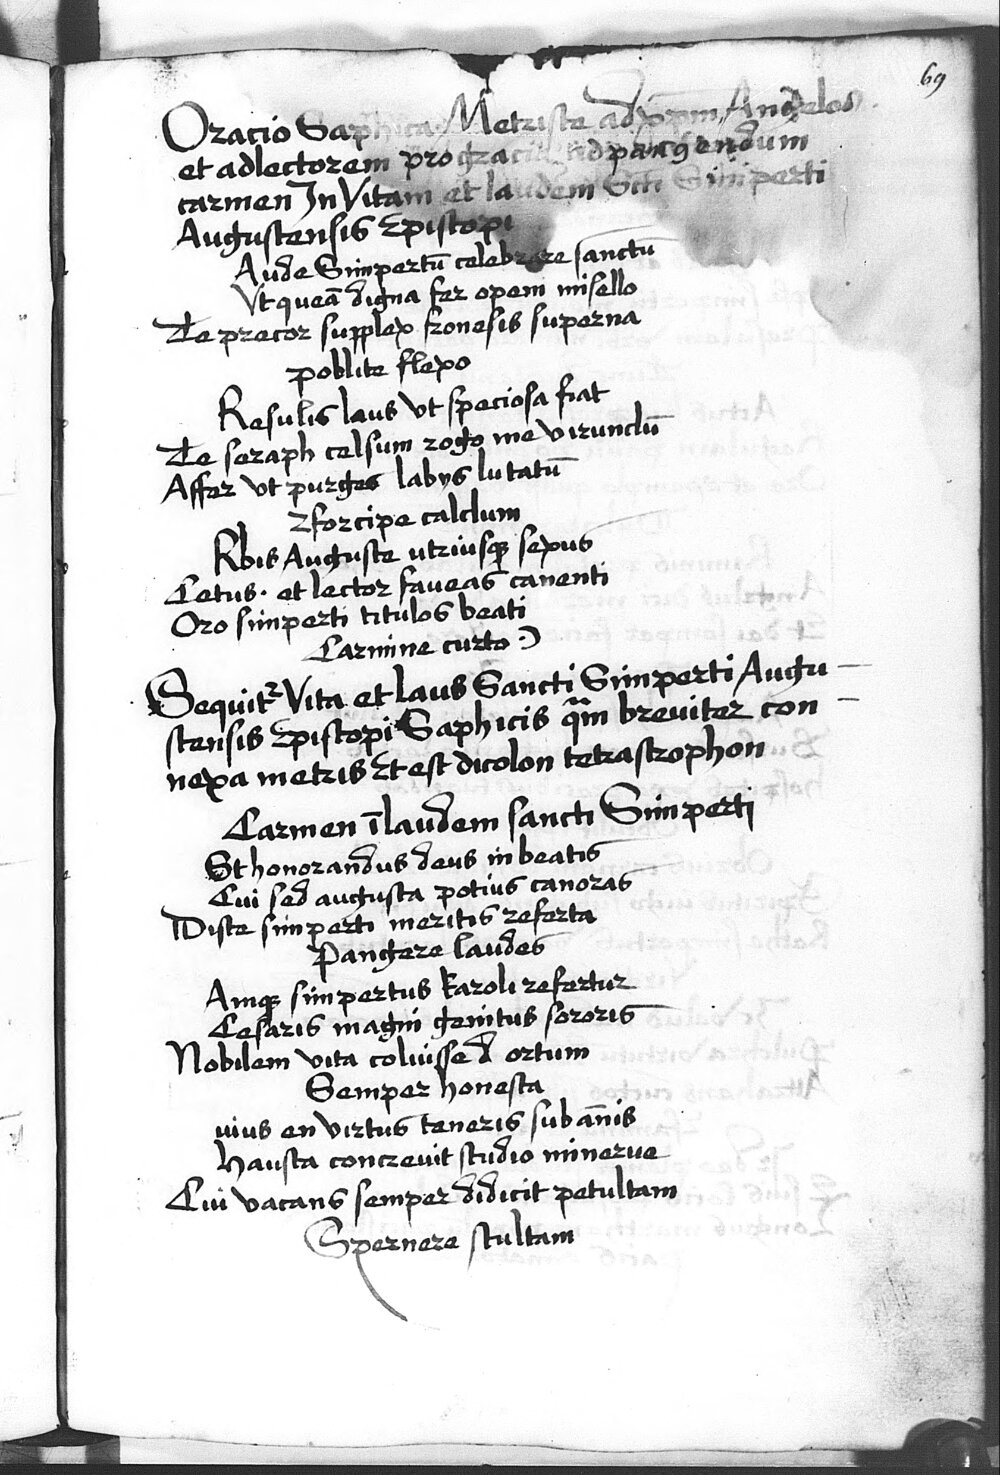 69
Oracio Saphica Metriste ad xp̄m, Angelos
et ad lectorem pro gracia ad pangendum
carmen In Vitam et laudem Sc̄ti Simperti
Augustensis Episcopi
Aude Simpertū celebrare sanctū
Vt queā digna fer opem misello
Te precor supplex fronesis superna
poblite flexo
Resulis laus vt speciosa fiat
Te seraph celsum rogo me virunclū
Affer vt purges labijs lutatū
Eforcipe calclum
Rbis Auguste utriusqꝫ sexus
Cetus. et lector faueas canenti
Oro simperti titulos beati
Carmine curto
Sequitr Vita et laus Sancti Simperti Augu-
stensis Episcopi Saphicis qm̄ breuiter con-
nexa metris Et est dicolon tetrastrophon
Carmen ī laudem sancti Simperti
St honorandus deus in beatis
Cui sed augusta potius canoras
Diste simperti meritis referta
Pangere laudes
Amqꝫ simpertus karoli refertur
Cesaris magni genitus sororis
Nobilem vita coluisse d ortum
Semper honesta
uius en virtus teneris sub ānis
Hausta concreuit studio minerue
Cui vacans semper didicit petultam
Spernere stultam